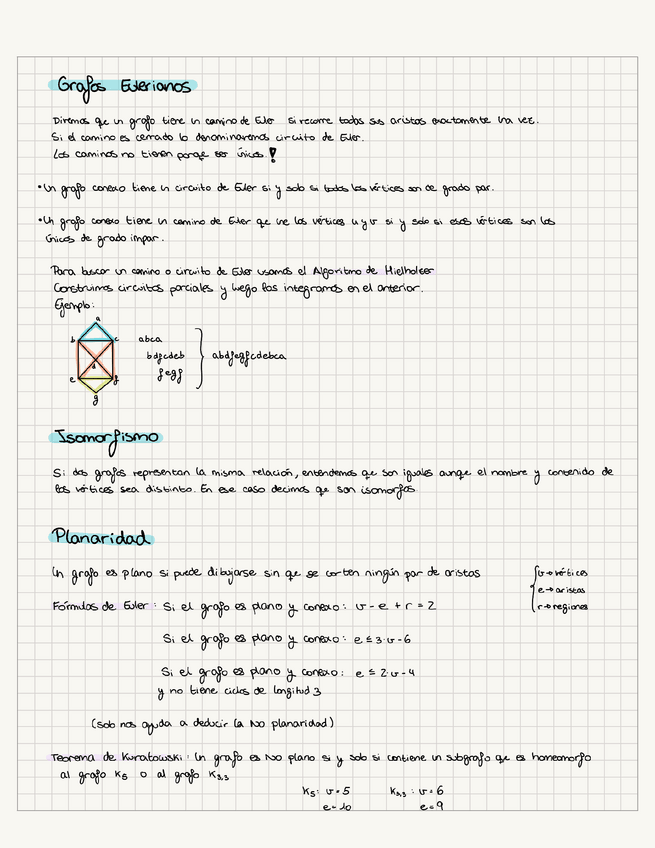 Grafos Eulerianos
Diremos que un grafo tiene un camino de Euler si recorre todas sus aristas exactamente una vez.
Si el camino es cerrado lo denominaremos circuito de Euler.
Los caminos no tienen porque ser únicos!
• Un grafo conexo tiene un circuito de Euler si y solo si todos los vértices son de grado par.
• Un grafo conexo tiene un camino de Euler que une los vértices u y v si y solo si esos vértices son los
únicos de grado impar.
Para buscar un camino o circuito de Euler usamos el Algoritmo de Hielholeer
Construimos circuitos parciales y luego los integramos en el anterior.
Ejemplo:
a
b c abca
d bdfcdeb abdfegfcdebca
e f fegf
g
Isomorfismo
Si dos grafos representan la misma relación, entendemos que son iguales aunqe el nombre y contenido de
los vértices sea distinto. En ese caso decimos que son isomorfos
Planaridad
Un grafo es plano si puede dibujarse sin que se corten ningún par de aristas
v→vértices
e→aristas
Fórmulas de Euler: Si el grafo es plano y conexo: v - e + r = 2
r→regiones
Si el grafo es plano y conexo: e ≤ 3·v-6
Si el grafo es plano y conexo: e ≤ 2·v-4
y no tiene ciclos de longitud 3
(solo nos ayuda a deducir la NO planaridad)
Teorema de Kuratowski: Un grafo es NO plano si y solo si contiene un subgrafo que es homeomorfo
al grafo K5 o al grafo K3,3
K5: v=5 K3,3: v=6
e=10 e=9